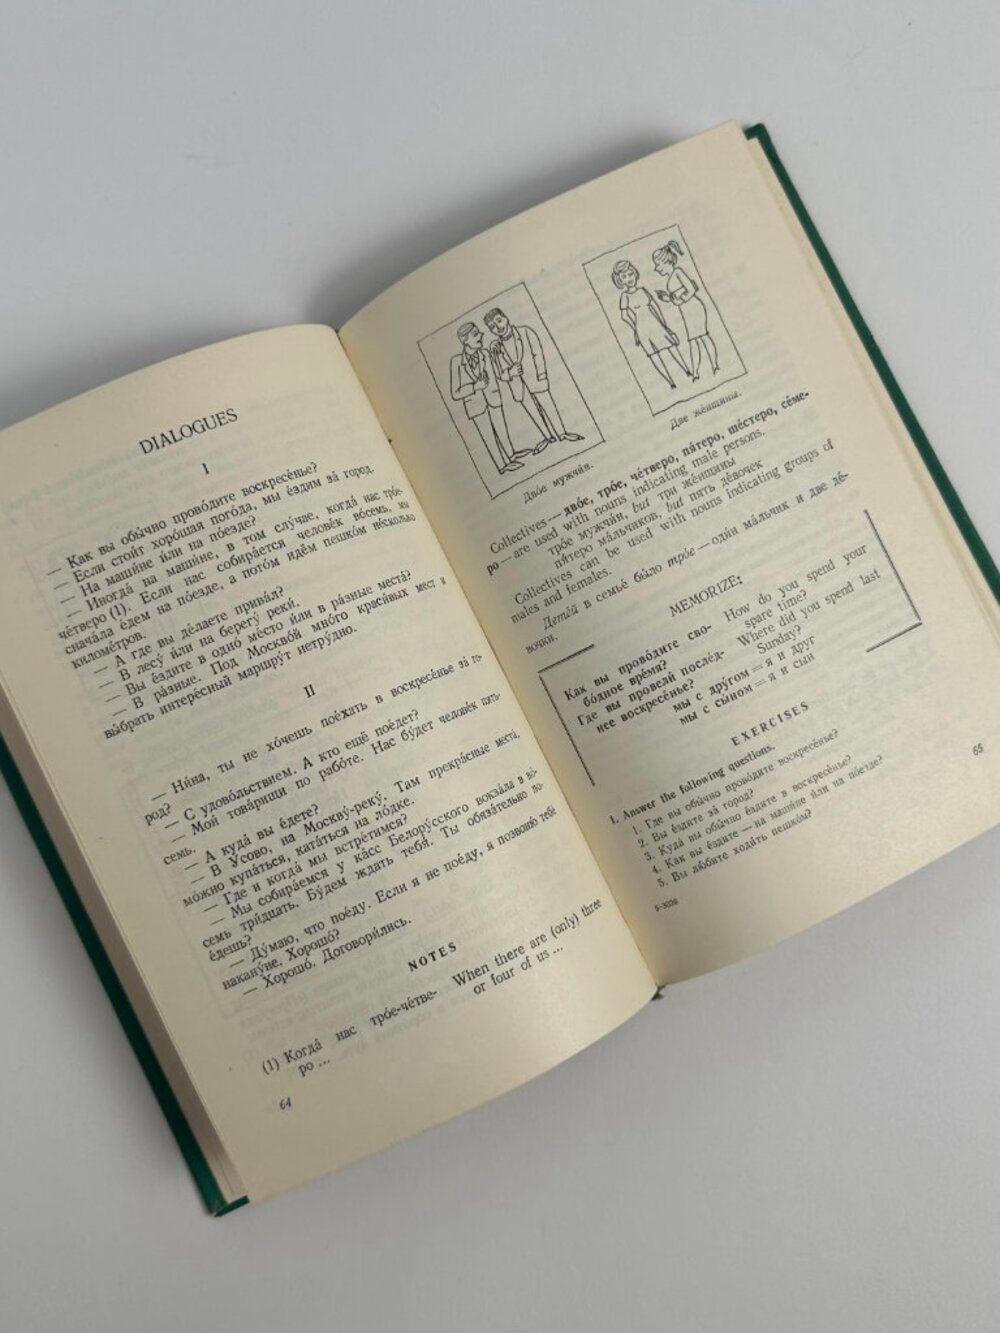 DIALOGUES
I
— Как вы обы́чно прово́дите воскресе́нье?
— Е́сли стои́т хоро́шая пого́да, мы е́здим за́ город.
— На маши́не и́ли на по́езде?
— Иногда́ на маши́не, в том слу́чае, когда́ нас тро́е-
че́тверо (1). Е́сли нас собира́ется челове́к во́семь, мы
снача́ла е́дем на по́езде, а пото́м идём пешко́м не́сколько
киломе́тров.
— А где вы де́лаете прива́л?
— В лесу́ и́ли на берегу́ реки́.
— Вы е́здите в одно́ ме́сто и́ли в ра́зные места́?
— В ра́зные. Под Москво́й мно́го краси́вых мест и
вы́брать интере́сный маршру́т нетру́дно.
II
— Ни́на, ты не хо́чешь пое́хать в воскресе́нье за́ го-
род?
— С удово́льствием. А кто ещё пое́дет?
— Мои́ това́рищи по рабо́те. Нас бу́дет челове́к пять-
семь.
— А куда́ вы е́дете?
— В У́сово, на Москву́-реку́. Там прекра́сные места́,
мо́жно купа́ться, ката́ться на ло́дке.
— Где и когда́ мы встре́тимся?
— Мы собира́емся у касс Белору́сского вокза́ла в во́-
семь три́дцать. Бу́дем ждать тебя́. Ты обяза́тельно по-
е́дешь?
— Ду́маю, что пое́ду. Е́сли я не пое́ду, я позвоню́ тебе́
накану́не. Хорошо́?
— Хорошо́. Договори́лись.
NOTES
(1) Когда́ нас тро́е-че́тве- When there are (only) three
ро ... or four of us ...
64
Дво́е мужчи́н.
Две же́нщины.
Collectives — дво́е, тро́е, че́тверо, пя́теро, ше́стеро, се́ме-
ро — are used with nouns indicating male persons.
тро́е мужчи́н, but три же́нщины
пя́теро ма́льчиков, but пять де́вочек
Collectives can be used with nouns indicating groups of
males and females.
Дете́й в семье́ бы́ло тро́е — оди́н ма́льчик и две де́-
вочки.
MEMORIZE:
Как вы прово́дите сво- How do you spend your
бо́дное вре́мя? spare time?
Где вы провели́ после́д- Where did you spend last
нее воскресе́нье? Sunday?
мы с дру́гом = я и друг
мы с сы́ном = я и сын
EXERCISES
1. Answer the following questions.
1. Где вы обы́чно прово́дите воскресе́нье?
2. Вы е́здите за́ город?
3. Куда́ вы обы́чно е́здите в воскресе́нье?
4. Как вы е́здите — на маши́не и́ли на по́езде?
5. Вы лю́бите ходи́ть пешко́м?
65